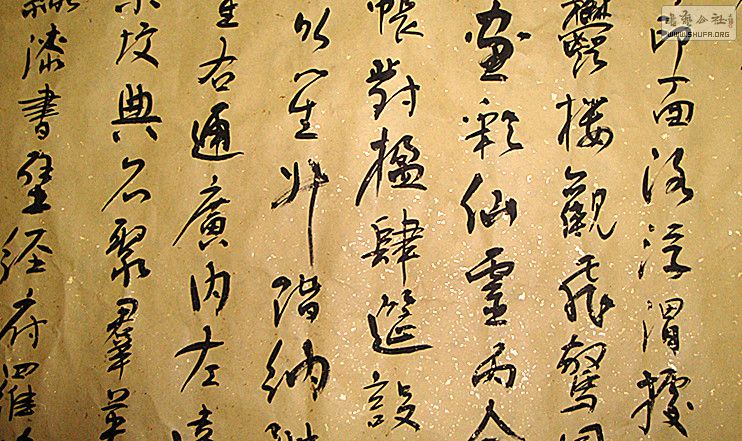 書藝公社
WWW.SHUFA.ORG
邙面洛浮渭據
鬱樓觀飛驚圖
畫彩仙靈丙舍
帳對楹肆筵設
吹笙升階納陛
星右通廣內左達
集墳典亦聚羣英
隸漆書壁經府羅